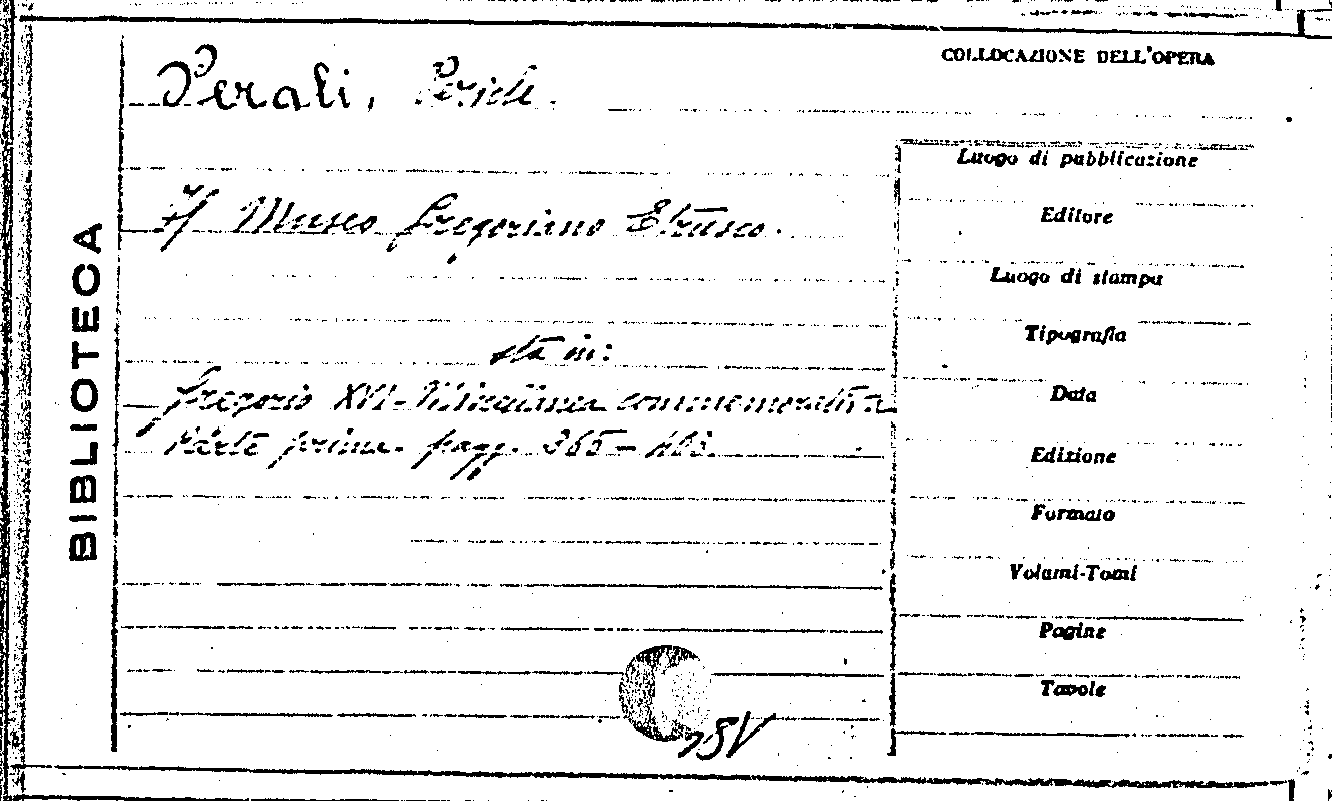 BIBLIOTECA
COLLOCAZIONE DELL'OPERA
Perali, Pericle.
Il Museo Gregoriano Etrusco.
sta in:
Gregorio XVI - Miscellanea commemorativa
Parte prima. pagg. 365 - 403.
Luogo di pubblicazione
Editore
Luogo di stampa
Tipografia
Data
Edizione
Formato
Volumi-Tomi
Pagine
Tavole